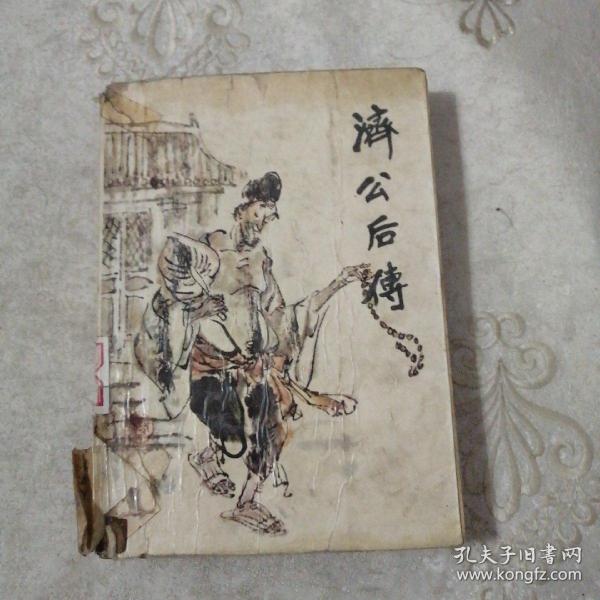 濟公后傳
孔夫子旧書网
www.kongfz.com